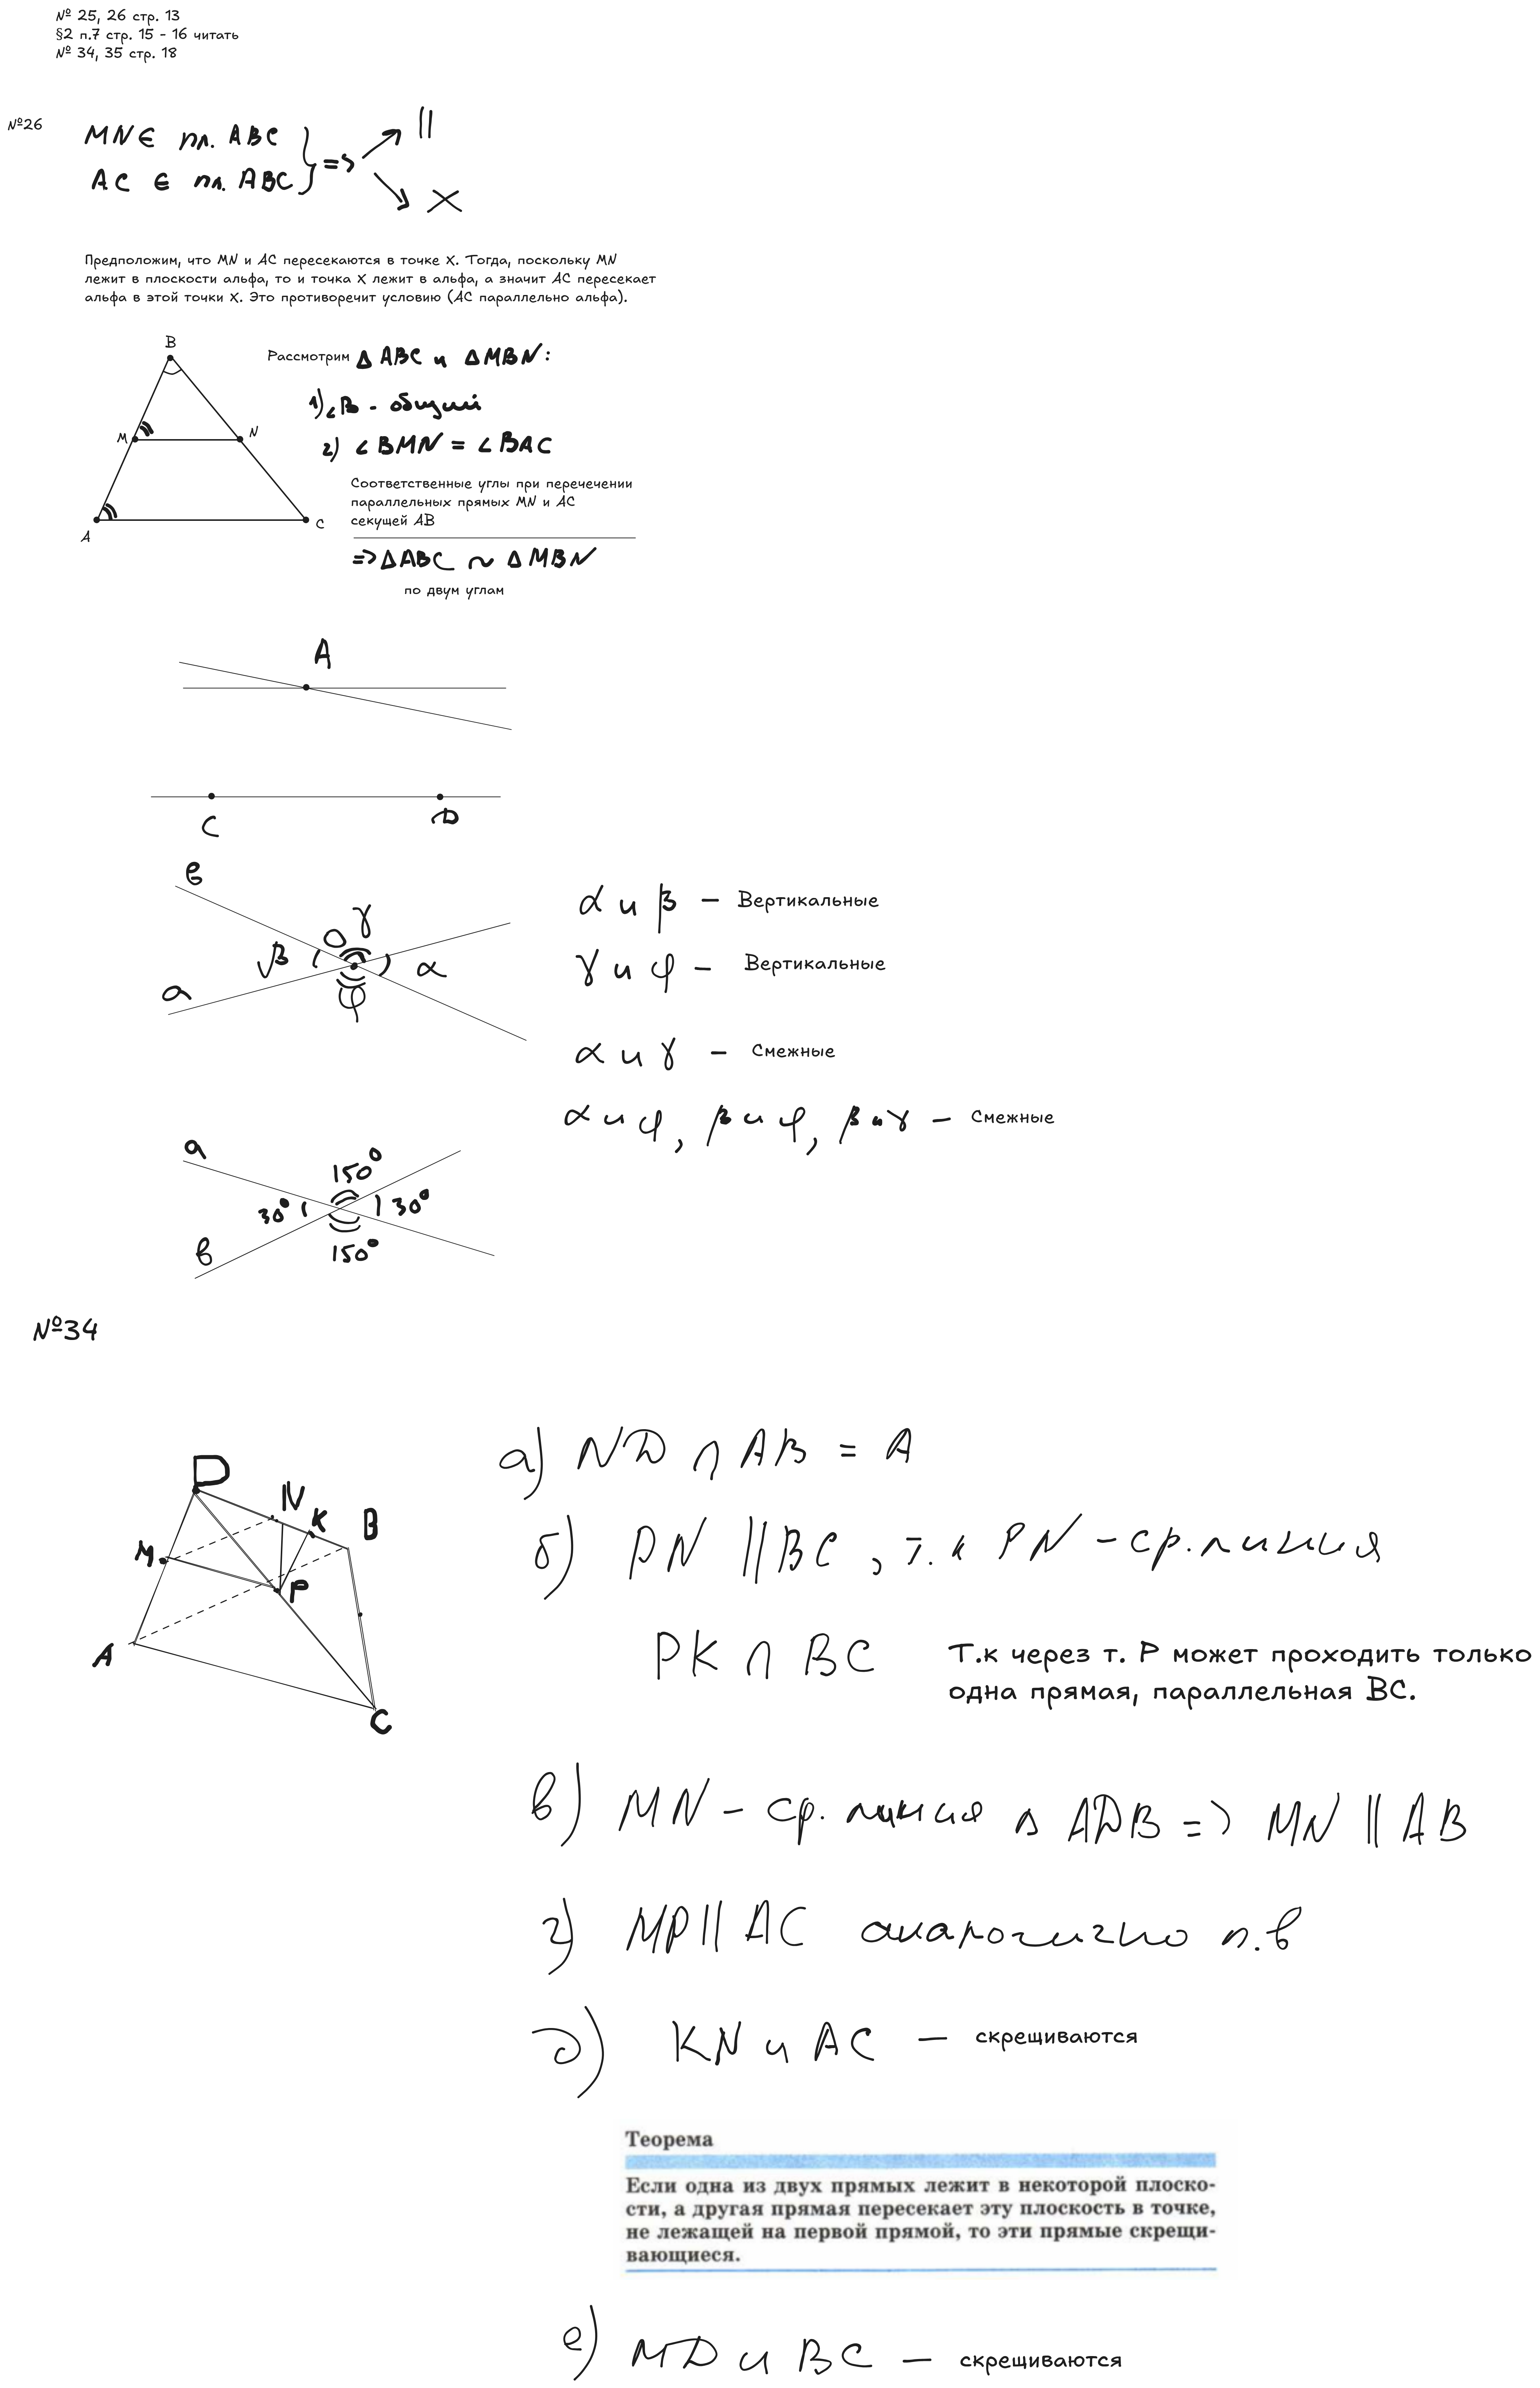 № 25, 26 стр. 13
§2 п.7 стр. 15 - 16 читать
№ 34, 35 стр. 18
№26
MN ∈ пл. ABC
AC ∈ пл. ABC
=>
||
X
Предположим, что MN и AC пересекаются в точке X. Тогда, поскольку MN
лежит в плоскости альфа, то и точка X лежит в альфа, а значит AC пересекает
альфа в этой точки X. Это противоречит условию (AC параллельно альфа).
B
M
N
A
C
Рассмотрим Δ ABC и ΔMBN:
1) ∠B - общий
2) ∠BMN = ∠BAC
Соответственные углы при перечечении
параллельных прямых MN и AC
секущей AB
=> ΔABC ~ ΔMBN
по двум углам
A
C
D
в
O
γ
β
α
a
φ
α и β - Вертикальные
γ и φ - Вертикальные
α и γ - Смежные
α и φ, β и φ, β и γ - Смежные
a
150°
30°
30°
в
150°
№34
D
N
K
B
M
P
A
C
а) ND ∩ AB = A
б) PN || BC, т.к PN - ср.линия
PK ∩ BC
Т.к через т. P может проходить только
одна прямая, параллельная BC.
в) MN - ср. линия Δ ADB => MN || AB
г) MP || AC аналогично п.в
д) KN и AC — скрещиваются
Теорема
Если одна из двух прямых лежит в некоторой плоско-
сти, а другая прямая пересекает эту плоскость в точке,
не лежащей на первой прямой, то эти прямые скрещи-
вающиеся.
е) MD и BC — скрещиваются